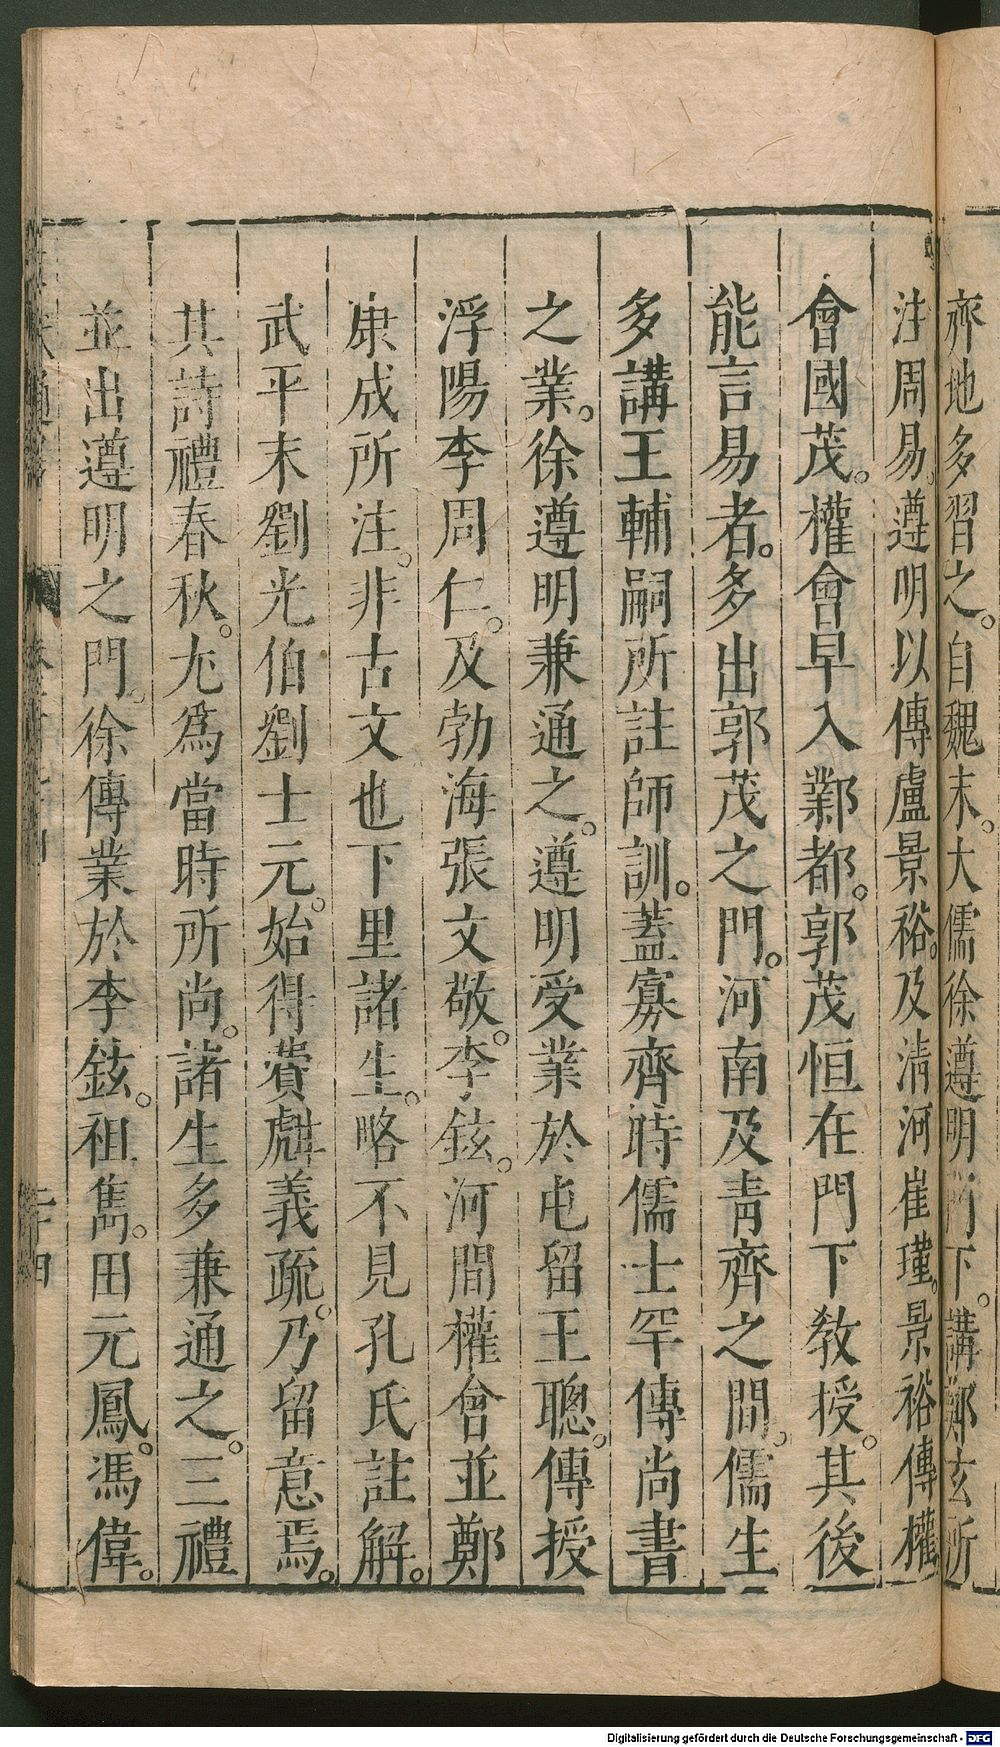 齊地多習之。自魏末。大儒徐遵明門下。講鄭玄所
注周易。遵明以傳盧景裕。及清河崔瑾。景裕傳權
會國茂。權會早入鄴都。郭茂恒在門下教授。其後
能言易者。多出郭茂之門。河南及青齊之間。儒生
多講王輔嗣所註師訓。蓋寡齊時儒士罕傳尚書
之業。徐遵明兼通之。遵明受業於屯留王聰。傳授
浮陽李周仁。及勃海張文敬。李鉉。河間權會並鄭
康成所注。非古文也下里諸生。略不見孔氏註解。
武平末劉光伯劉士元。始得費甝義疏。乃留意焉。
其詩禮春秋。尤爲當時所尚。諸生多兼通之。三禮
並出遵明之門。徐傳業於李鉉。祖雋。田元鳳。馮偉。
二十四
Digitalisierung gefördert durch die Deutsche Forschungsgemeinschaft - DFG